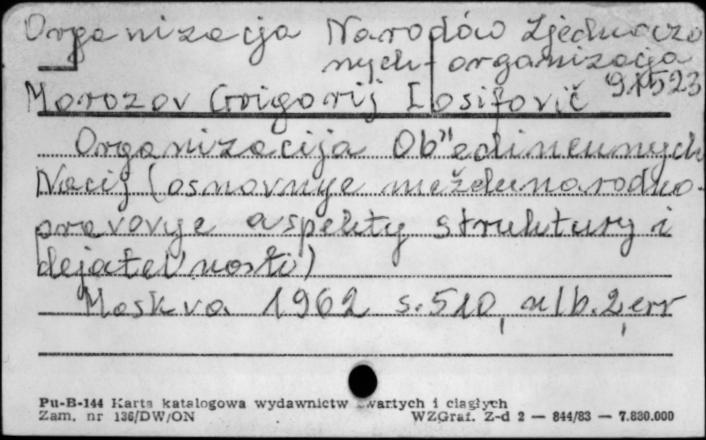 Organizacja Narodów Zjednoczo
nych - organizacja
Morozov Grigorij Iosifovič 91523
Organizacija Ob"edinennych
Nacij (osnovnye meždunarodno-
pravovye aspekty struktury i
dejatel'nosti)
Moskva 1962 s. 510, nlb. 2, err
Pu-B-144 Karta katalogowa wydawnictw zwartych i ciągłych
Zam. nr 136/DW/ON WZGraf. Z-d 2 — 844/83 — 7.830.000